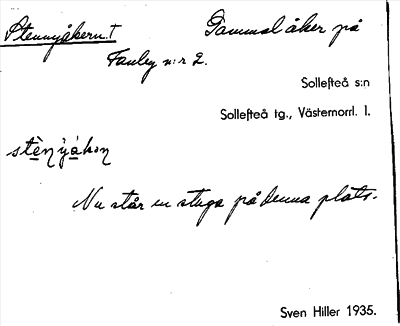 Stennyåkern.† Gammal åker på
Fanby n:r 2.
Sollefteå s:n
Sollefteå tg., Västernorrl. l.
stèn`ỳåkɘn
Nu står en stuga på denna plats.
Sven Hiller 1935.